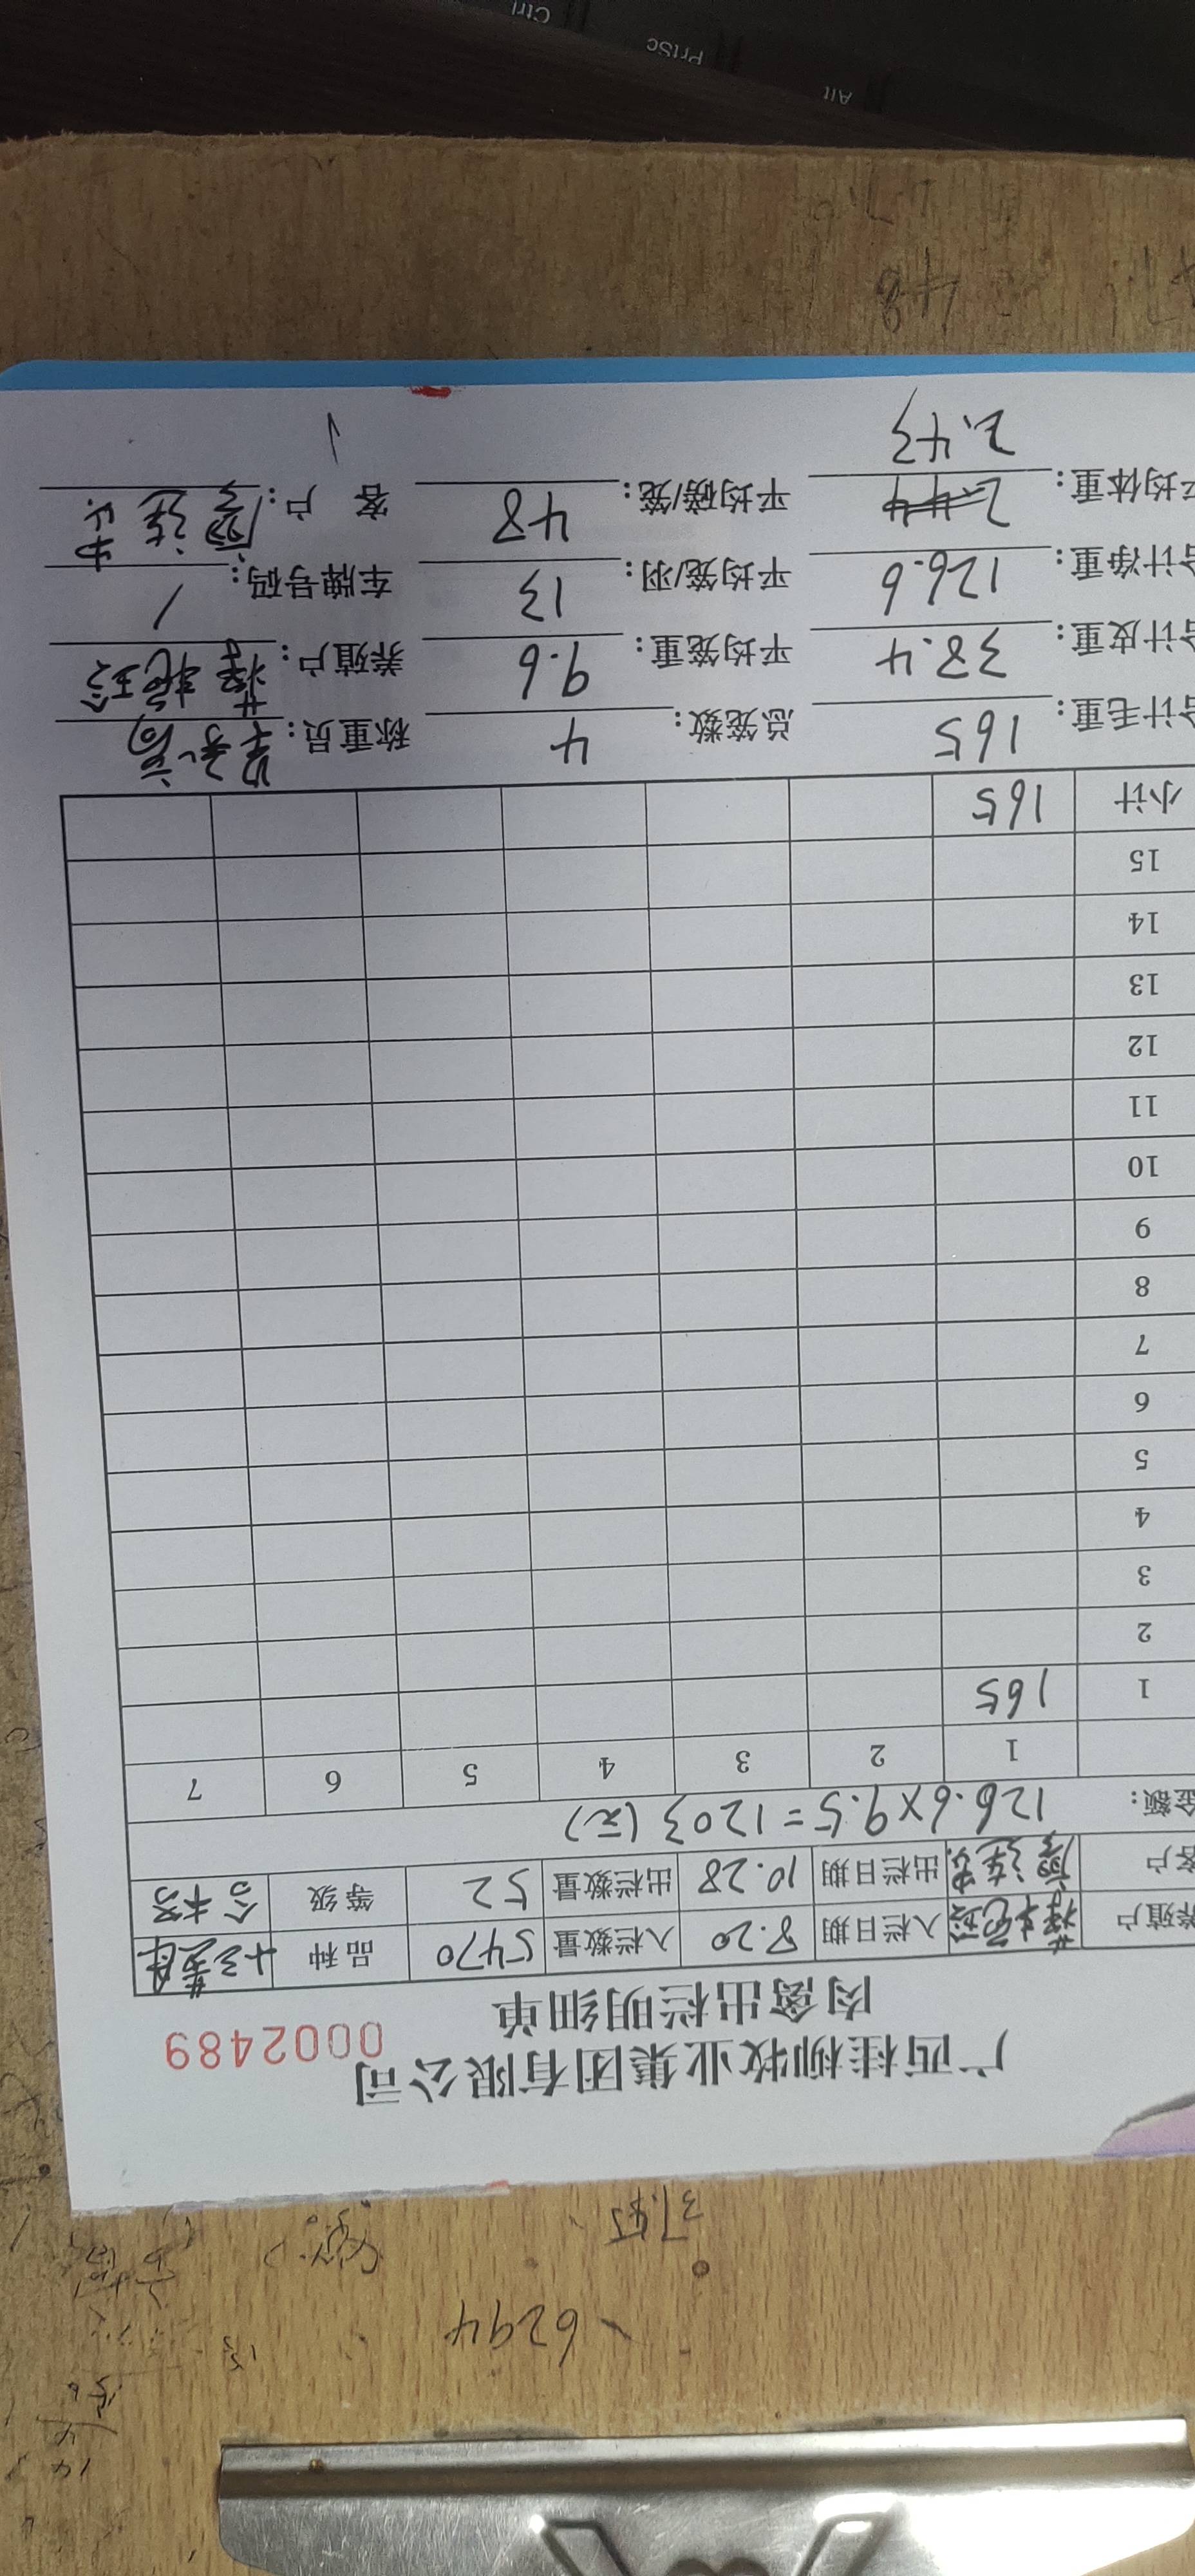 广西桂柳牧业集团有限公司
肉禽出栏明细单
0002489
养殖户 入栏日期 8.20 入栏数量 5470 品种
客户 出栏日期 10.28 出栏数量 52 等级
金额: 126.6×9.5=1203(元)
1 2 3 4 5 6 7
1 165
2
3
4
5
6
7
8
9
10
11
12
13
14
15
小计 165
合计毛重: 165 总笼数: 4 称重员:
合计皮重: 38.4 平均笼重: 9.6 养殖户:
合计净重: 126.6 平均笼/羽: 13 车牌号码: /
平均体重: 2.44 平均磅/笼: 48 客 户:
2.43
48
6294
Alt
PrtSc
Ctrl